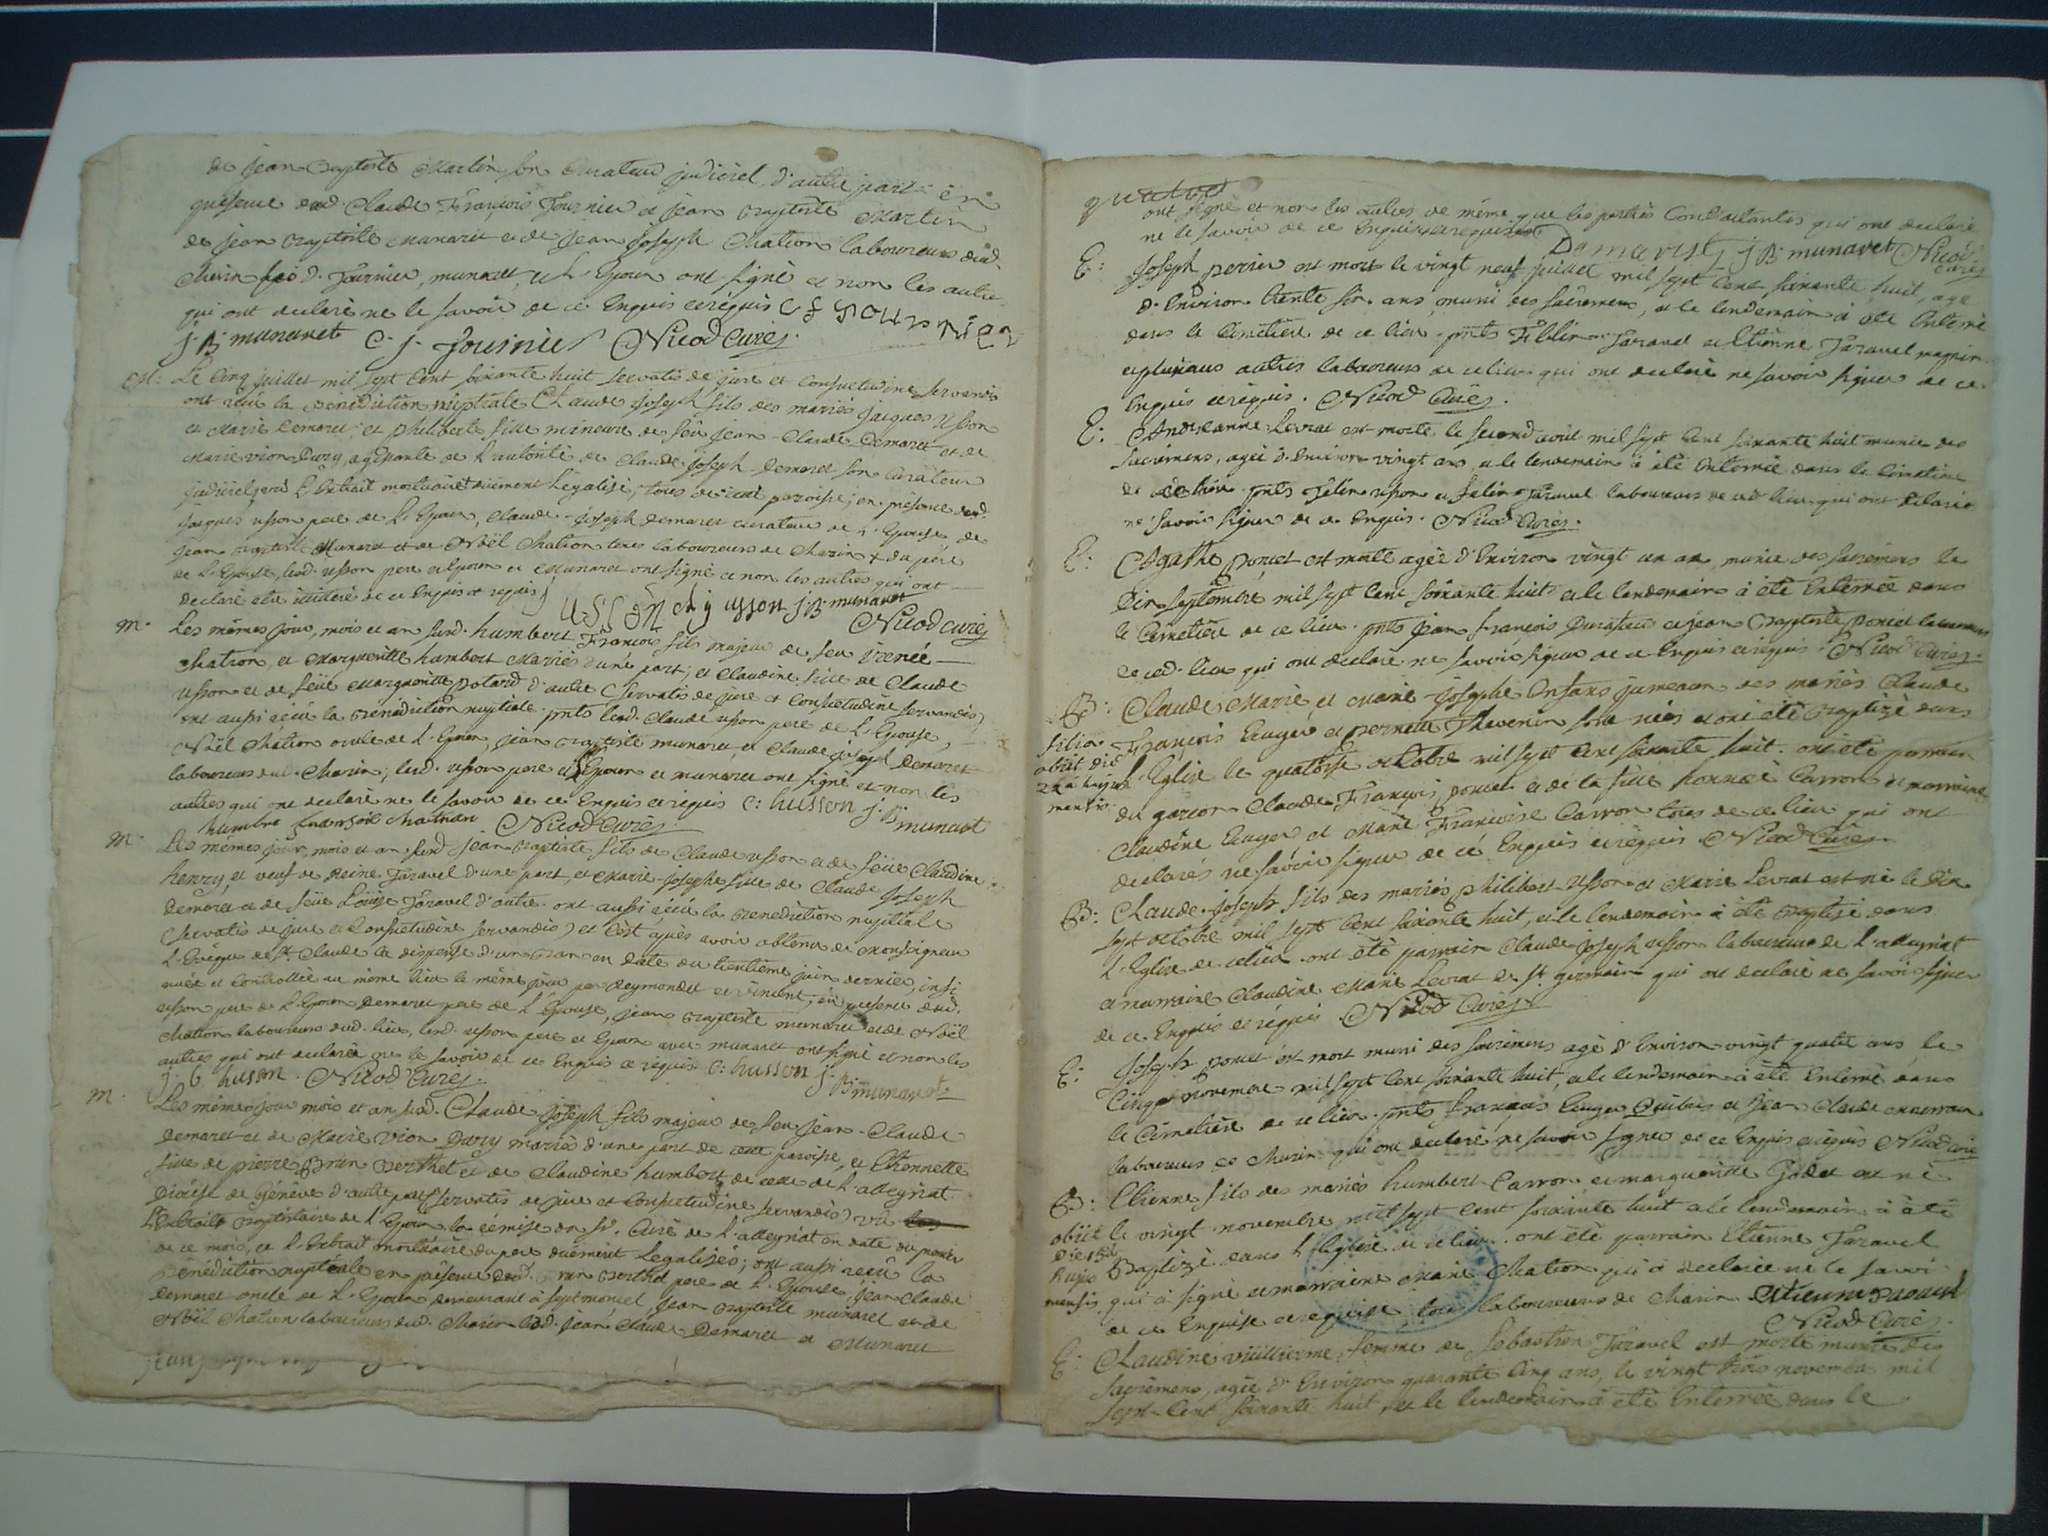 de jean Baptiste Martin son Curateur judiciel, d'autre part en
présence dud. Claude François Fournier et jean Baptiste Martin
de jean Baptiste Munaret et de Jean Joseph Chation laboureurs dud.
Charin lesd. Fournier, munaret, et L'Epoux ont signé et non les autres
qui ont declaré ne le savoir de ce Enquis et réquis
j. B. munaret C. j. Fournier Nicod Curé.
M. Le Cinq juillet mil sept Cent soixante huit servatis de jure et Consuetudine servandis
ont reçu la Bénédiction nuptiale Claude Joseph fils des mariés jacques Usson
et Marie Demaret; et philiberte fille mineure de feu jean-Claude Demaret et de
Marie Vion Dury, agissante de L'autorité de Claude joseph Demaret son Curateur
judiciel, L'Extrait mortuaire duement Légalisé, tous de cette paroisse, en présence dud.
jacques usson pere de L'Epoux, Claude-joseph Demaret curateur de L'Epouse, de
jean Baptiste Munaret et de Noël Chation tous laboureurs de Charin + du père
de L'Epouse, lesd. usson pere et Epoux et Munaret ont signé et non les autres qui ont
declaré etre illiteré de ce Enquis et requis
USSON c j usson j. B. munaret
Nicod curé
M. Les mêmes jour, mois et an susd. humbert François fils majeur de feu René
Chation, et Margueritte humbert Mariés d'une part; et Claudine fille de Claude
Usson et de feüe Margueritte potard d'autre (servatis de jure et Consuetudine servandis)
ont aussi reçu la Benediction nuptiale pnts lesd. Claude usson pere de L'Epouse,
Noël Chation oncle de L'Epoux, jean Baptiste munaret et Claude joseph Demaret
laboureurs dud. Charin; lesd. usson pere et Epoux et munaret ont signé et non les
autres qui ont declaré ne le savoir de ce Enquis et réquis C: husson j. B. munaret
humbre fransoie Chation Nicod Curé
M. Les mêmes jour, mois et an susd. jean-Baptiste fils de Claude usson et de feüe Claudine
henry, et veuf de Reine Faravel d'une part, et Marie-Josephe fille de Claude Joseph
Demaret et de feüe Loüise Faravel d'autre ont aussi reçu la Benediction nuptiale
(servatis de jure et Consuetudine servandis) et C'est après avoir obtenu de Monseigneur
L'Evêque de St. Claude la dispense d'un Ban en date du trentième juin dernier, insi-
nuée et Controllée au même lieu le même jour par Reymondet et vincent, en présence dud.
usson pere de L'Epoux Demaret pere de L'Epouse, jean Baptiste munaret et de Noël
Chation laboureurs dud. lieu, lesd. usson pere et Epoux avec munaret ont signé et non les
autres qui ont declaré ne le savoir de ce Enquis et requis C: husson j. B. munaret
j. b husson. Nicod Curé.
M. Les mêmes jour mois et an susd. Claude joseph fils majeur de feu jean-Claude
Demaret et de Marie Vion Dury mariés d'une part de cette paroisse, et Etiennette
fille de pierre Brun Berthet et de Claudine humbert de celle de L'alleyriat
Diocèse de Génève d'autre part (servatis de jure et Consuetudine servandis) vû
L'Extrait Baptistaire de L'Epoux la rémise du Sr. Curé de L'alleyriat en date du premier
de ce mois, et L'Extrait mortuaire du pere duement Legalisés; ont aussi reçu la
Bénédiction nuptiale en présence dud. Brun Berthet pere de L'Epouse, jean Claude
Demaret oncle de L'Epoux demeurant à septmoncel, Jean Baptiste munaret et de
Noël Chation laboureurs dud. Charin lesd. jean Claude Demaret et Munaret
ont signé et non les autres, de même que les parties Contractantes qui ont declaré
ne le savoir de ce Enquis et requis Demarest j B munaret Nicod
curé
E: Joseph perrier est mort le vingt neuf juillet mil sept Cent soixante huit, agé
d'Environ trente six ans, muni des sacremens, et le lendemain à été Enterré
dans le Cimetière de ce lieu pnts Felix Faravel et Etienne Faravel
et plusieurs autres laboureurs de ce lieu qui ont declaré ne savoir signer de ce
Enquis et réquis. Nicod Curé.
E: Andreanne Levrat est morte le second aout mil sept Cent soixante huit munie des
Sacremens, agée d'Environ vingt ans, et le lendemain à été Enterrée dans le Cimetière
de ce lieu pnts Félix usson et Felix Faravel laboureurs de ce lieu qui ont declaré
ne savoir signer de ce Enquis. Nicod Curé.
E: Agathe poncet est morte agée d'Environ vingt un an, munie des sacremens le
Dix septembre mil sept Cent soixante huit, et le lendemain à été Enterrée dans
le Cimetière de ce lieu pnts jean François et jean Baptiste poncet laboureurs
de ced. lieu qui ont declaré ne savoir signer de ce Enquis et requis. Nicod Curé.
B: Claude Marie et Marie-Josephe Enfans jumeaux des mariés Claude
François Cuger et pernette Thevenin sont nées et ont été Baptizé dans
filia
obiit die
22a hujus
mensis
L'Eglise le quatorse octobre mil sept Cent soixante huit. ont été parrain
du garçon Claude François poncet et de la fille honnoré Carron et marraine
Claudine Cuger et Marie Françoise Carron tous de ce lieu qui ont
declarés ne savoir signer de ce Enquis et réquis Nicod Curé
B: Claude-Joseph fils des mariés philibert Usson et Marie Levrat est né le Dix
sept octobre mil sept Cent soixante huit, et le lendemain à été Baptisé dans
L'Eglise de ce lieu ont été parrain Claude joseph usson laboureur de L'alleyriat
et marraine Claudine Marie Levrat de St. germain qui ont declaré ne savoir signer
de ce Enquis et réquis Nicod Curé
E: Joseph poncet est mort muni des sacremens agé d'Environ vingt quatre ans le
Cinq novembre mil sept Cent soixante huit, et le lendemain à été Enterré dans
le Cimetière de ce lieu pnts François Cuger et Jean Claude
laboureurs de Charin qui ont declaré ne savoir signer de ce Enquis et requis Nicod curé
B: Etienne fils des mariés humbert Carron et margueritte Godet est né
le vingt novembre mil sept Cent soixante huit et le lendemain à été
obiit
Die 15a
hujus
mensis
Baptizé dans L'Eglise de ce lieu. ont été parrain Etienne Faravel
qui à signé et marraine Marie Chation qui à declarée ne le savoir
de ce Enquise et requise tous laboureurs de Charin Etienne
Nicod Curé.
E: Claudine vüillierme femme de Sebastien Faravel est morte munie des
Sacrêmens, agée d'Environ quarante Cinq ans, le vingt trois novembre mil
sept-Cent soixante huit, et le lendemain à été Enterrée dans le